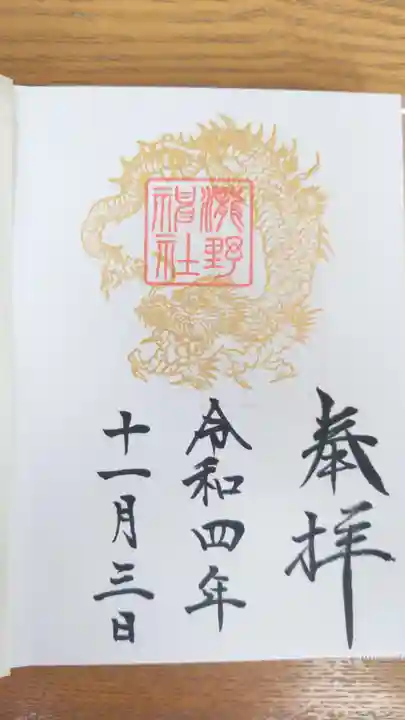 奉拝
瀧野
神社
令和四年
十一月三日